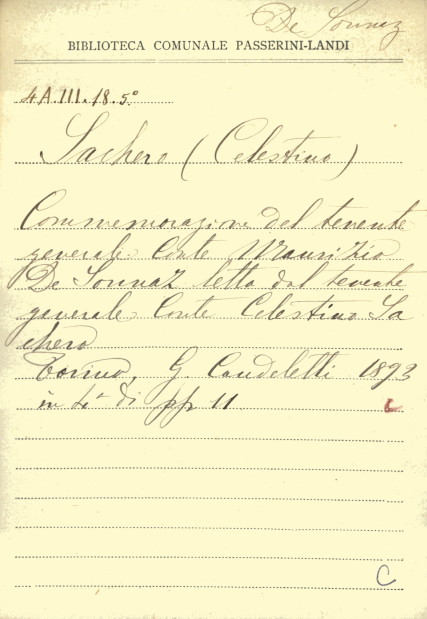 De Sonnaz
BIBLIOTECA COMUNALE PASSERINI-LANDI
4A.III.18.5°
Sachero (Celestino)
Commemorazione del tenente
generale Conte Maurizio
De Sonnaz letta dal tenente
generale Conte Celestino Sa
chero
Torino, G. Candeletti 1893
in 4° di pp 11
C